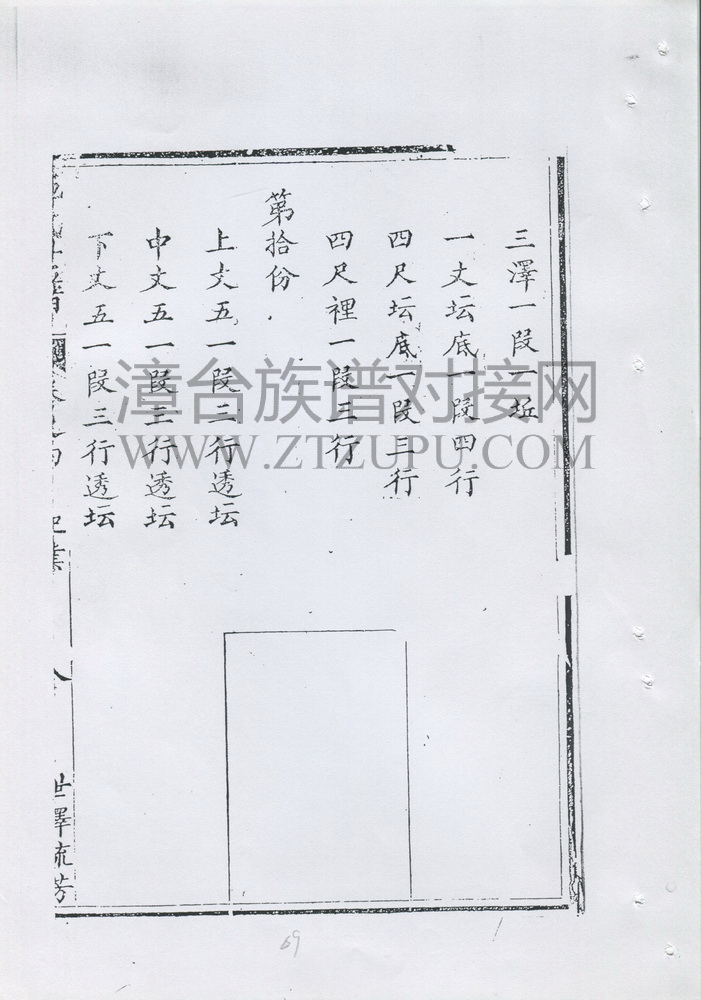 三澤一段一坵
一丈坛底一段四行
四尺坛底一段三行
四尺裡一段三行
第拾份
上丈五一段二行透坛
中文五一段三行透坛
下丈五一段三行透坛
世澤流芳
漳台族谱对接网
WWW.ZTZUPU.COM
69